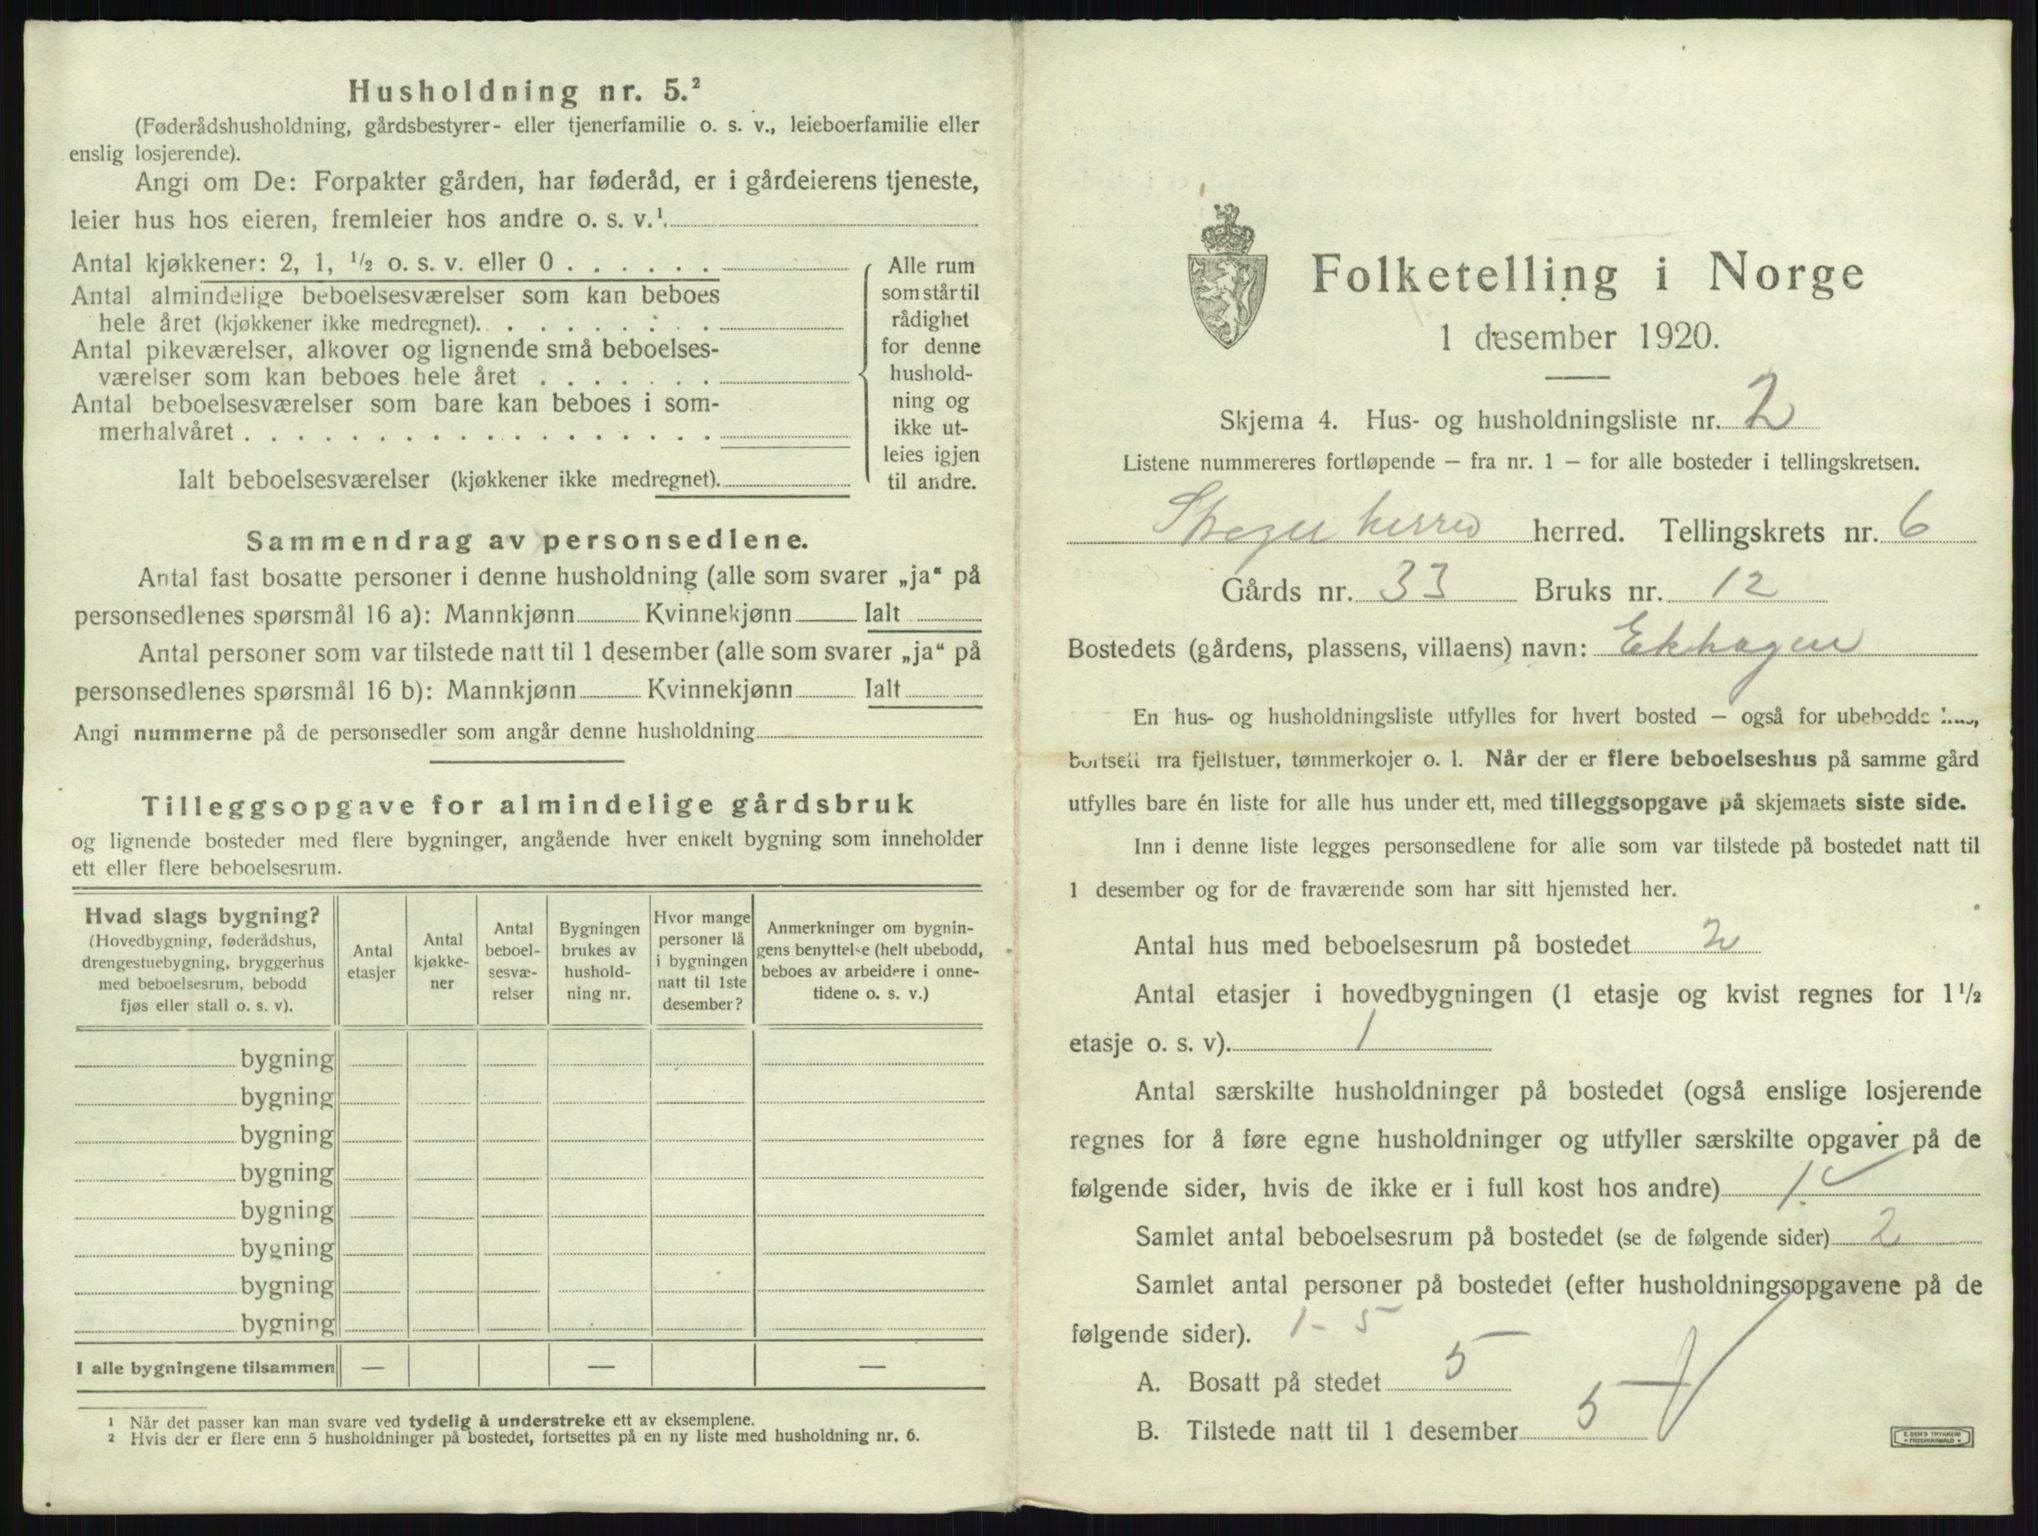 Husholdning nr. 5.²
(Føderådshusholdning, gårdsbestyrer- eller tjenerfamilie o. s. v., leieboerfamilie eller
enslig losjerende).
Angi om De: Forpakter gården, har føderåd, er i gårdeierens tjeneste,
leier hus hos eieren, fremleier hos andre o. s. v.¹.
Antal kjøkkener: 2, 1, ½ o. s. v. eller 0 . . . . . .
Antal almindelige beboelsesværelser som kan beboes
hele året (kjøkkener ikke medregnet). . . . . . . .
Antal pikeværelser, alkover og lignende små beboelses-
værelser som kan beboes hele året . . . . . . .
Antal beboelsesværelser som bare kan beboes i som-
merhalvåret . . . . . . . . . . . . . . . . . .
Ialt beboelsesværelser (kjøkkener ikke medregnet).
Alle rum
som står til
rådighet
for denne
hushold-
ning og
ikke ut-
leies igjen
til andre.
Sammendrag av personsedlene.
Antal fast bosatte personer i denne husholdning (alle som svarer „ja“ på
personsedlenes spørsmål 16 a): Mannkjønn Kvinnekjønn Ialt
Antal personer som var tilstede natt til 1 desember (alle som svarer „ja“ på
personsedlenes spørsmål 16 b): Mannkjønn Kvinnekjønn Ialt
Angi nummerne på de personsedler som angår denne husholdning
Tilleggsopgave for almindelige gårdsbruk
og lignende bosteder med flere bygninger, angående hver enkelt bygning som inneholder
ett eller flere beboelsesrum.
Hvad slags bygning?
(Hovedbygning, føderådshus,
drengestuebygning, bryggerhus
med beboelsesrum, bebodd
fjøs eller stall o. s. v).
Antal
etasjer
Antal
kjøkke-
ner
Antal
beboel-
sesvæ-
relser
Bygningen
brukes av
hushold-
ning nr.
Hvor mange
personer lå
i bygningen
natt til 1ste
desember?
Anmerkninger om bygnin-
gens benyttelse (helt ubebodd,
beboes av arbeidere i onne-
tidene o. s. v.)
bygning
bygning
bygning
bygning
bygning
bygning
bygning
bygning
I alle bygningene tilsammen — — —
¹ Når det passer kan man svare ved tydelig å understreke ett av eksemplene.
² Hvis der er flere enn 5 husholdninger på bostedet, fortsettes på en ny liste med husholdning nr. 6.
Folketelling i Norge
1 desember 1920.
Skjema 4. Hus- og husholdningsliste nr. 2
Listene nummereres fortløpende – fra nr. 1 – for alle bosteder i tellingskretsen.
herred herred. Tellingskrets nr. 6
Gårds nr. 33 Bruks nr. 12
Bostedets (gårdens, plassens, villaens) navn: Ekhagen
En hus- og husholdningsliste utfylles for hvert bosted – også for ubebodde hus,
bortsett fra fjellstuer, tømmerkojer o. l. Når der er flere beboelseshus på samme gård
utfylles bare én liste for alle hus under ett, med tilleggsopgave på skjemaets siste side.
Inn i denne liste legges personsedlene for alle som var tilstede på bostedet natt til
1 desember og for de fraværende som har sitt hjemsted her.
Antal hus med beboelsesrum på bostedet 2
Antal etasjer i hovedbygningen (1 etasje og kvist regnes for 1½
etasje o. s. v). 1
Antal særskilte husholdninger på bostedet (også enslige losjerende
regnes for å føre egne husholdninger og utfyller særskilte opgaver på de
følgende sider, hvis de ikke er i full kost hos andre) 1.
Samlet antal beboelsesrum på bostedet (se de følgende sider) 2
Samlet antal personer på bostedet (efter husholdningsopgavene på de
følgende sider). 1-5
A. Bosatt på stedet 5
B. Tilstede natt til 1 desember 5